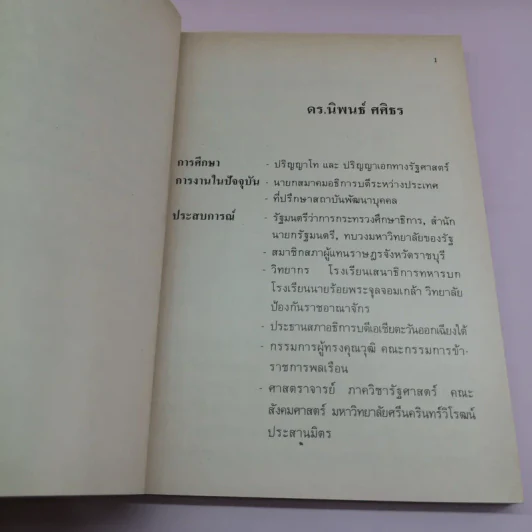 1
ดร.นิพนธ์ ศศิธร
การศึกษา - ปริญญาโท และ ปริญญาเอกทางรัฐศาสตร์
การงานในปัจจุบัน - นายกสมาคมอธิการบดีระหว่างประเทศ
- ที่ปรึกษาสถาบันพัฒนาบุคคล
ประสบการณ์ - รัฐมนตรีว่าการกระทรวงศึกษาธิการ, สำนัก
นายกรัฐมนตรี, ทบวงมหาวิทยาลัยของรัฐ
- สมาชิกสภาผู้แทนราษฎรจังหวัดราชบุรี
- วิทยากร โรงเรียนเสนาธิการทหารบก
โรงเรียนนายร้อยพระจุลจอมเกล้า วิทยาลัย
ป้องกันราชอาณาจักร
- ประธานสภาอธิการบดีเอเซียตะวันออกเฉียงใต้
- กรรมการผู้ทรงคุณวุฒิ คณะกรรมการข้า-
ราชการพลเรือน
- ศาสตราจารย์ ภาควิชารัฐศาสตร์ คณะ
สังคมศาสตร์ มหาวิทยาลัยศรีนครินทร์วิโรฒน์
ประสานมิตร